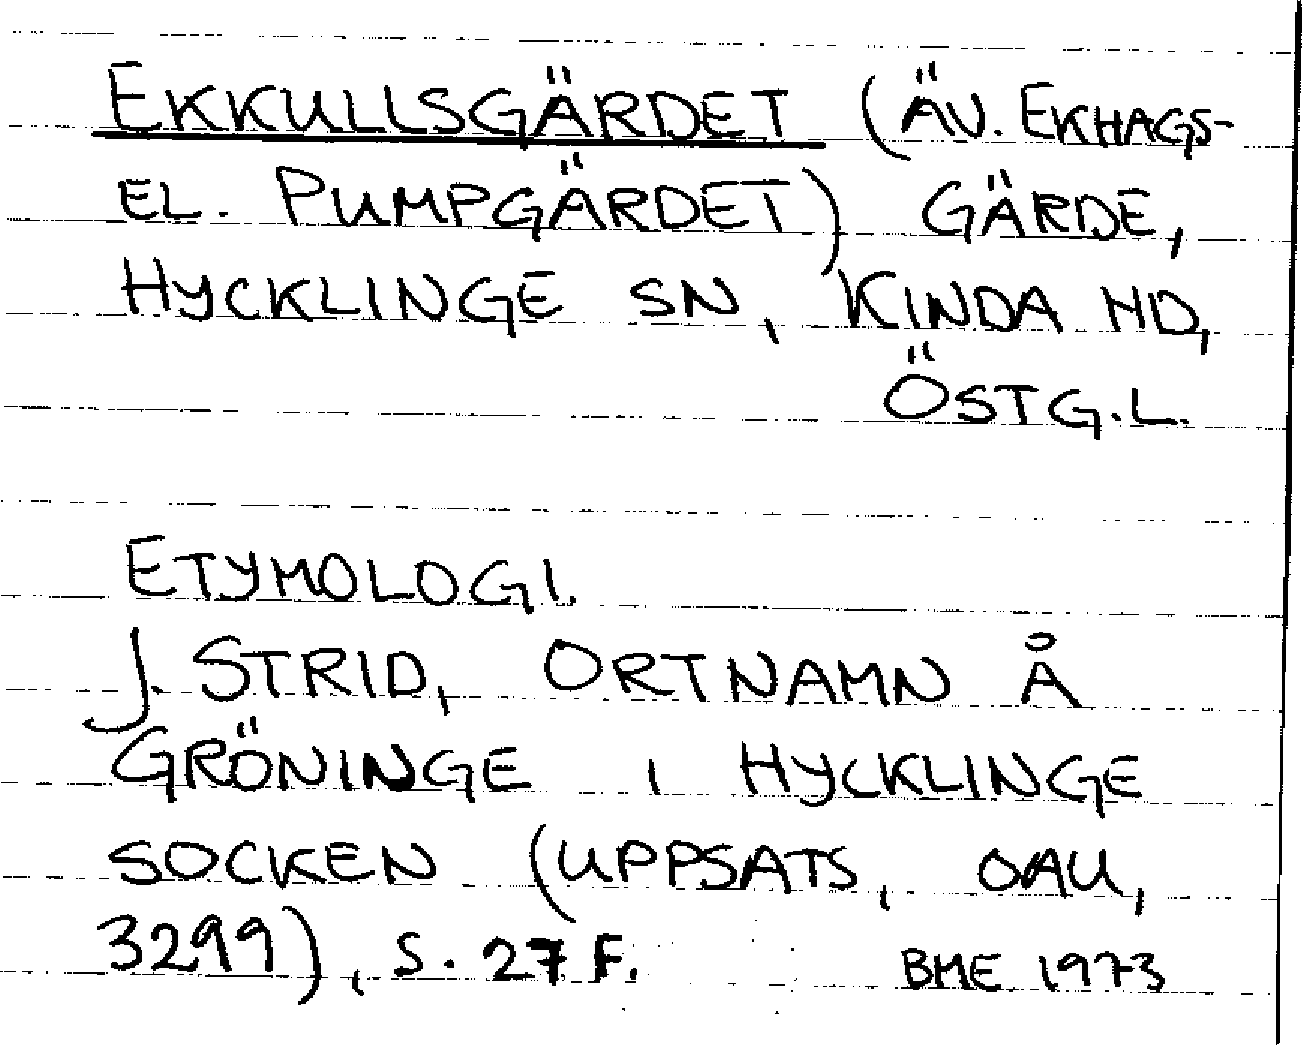 EKKULLSGÄRDET (ÄV. EKHAGS-
EL. PUMPGÄRDET) GÄRDE,
HYCKLINGE SN, KINDA HD,
ÖSTG.L.
ETYMOLOGI.
J. STRID, ORTNAMN Å
GRÖNINGE I HYCKLINGE
SOCKEN (UPPSATS, OAU,
3299), S. 27 F. BME 1973